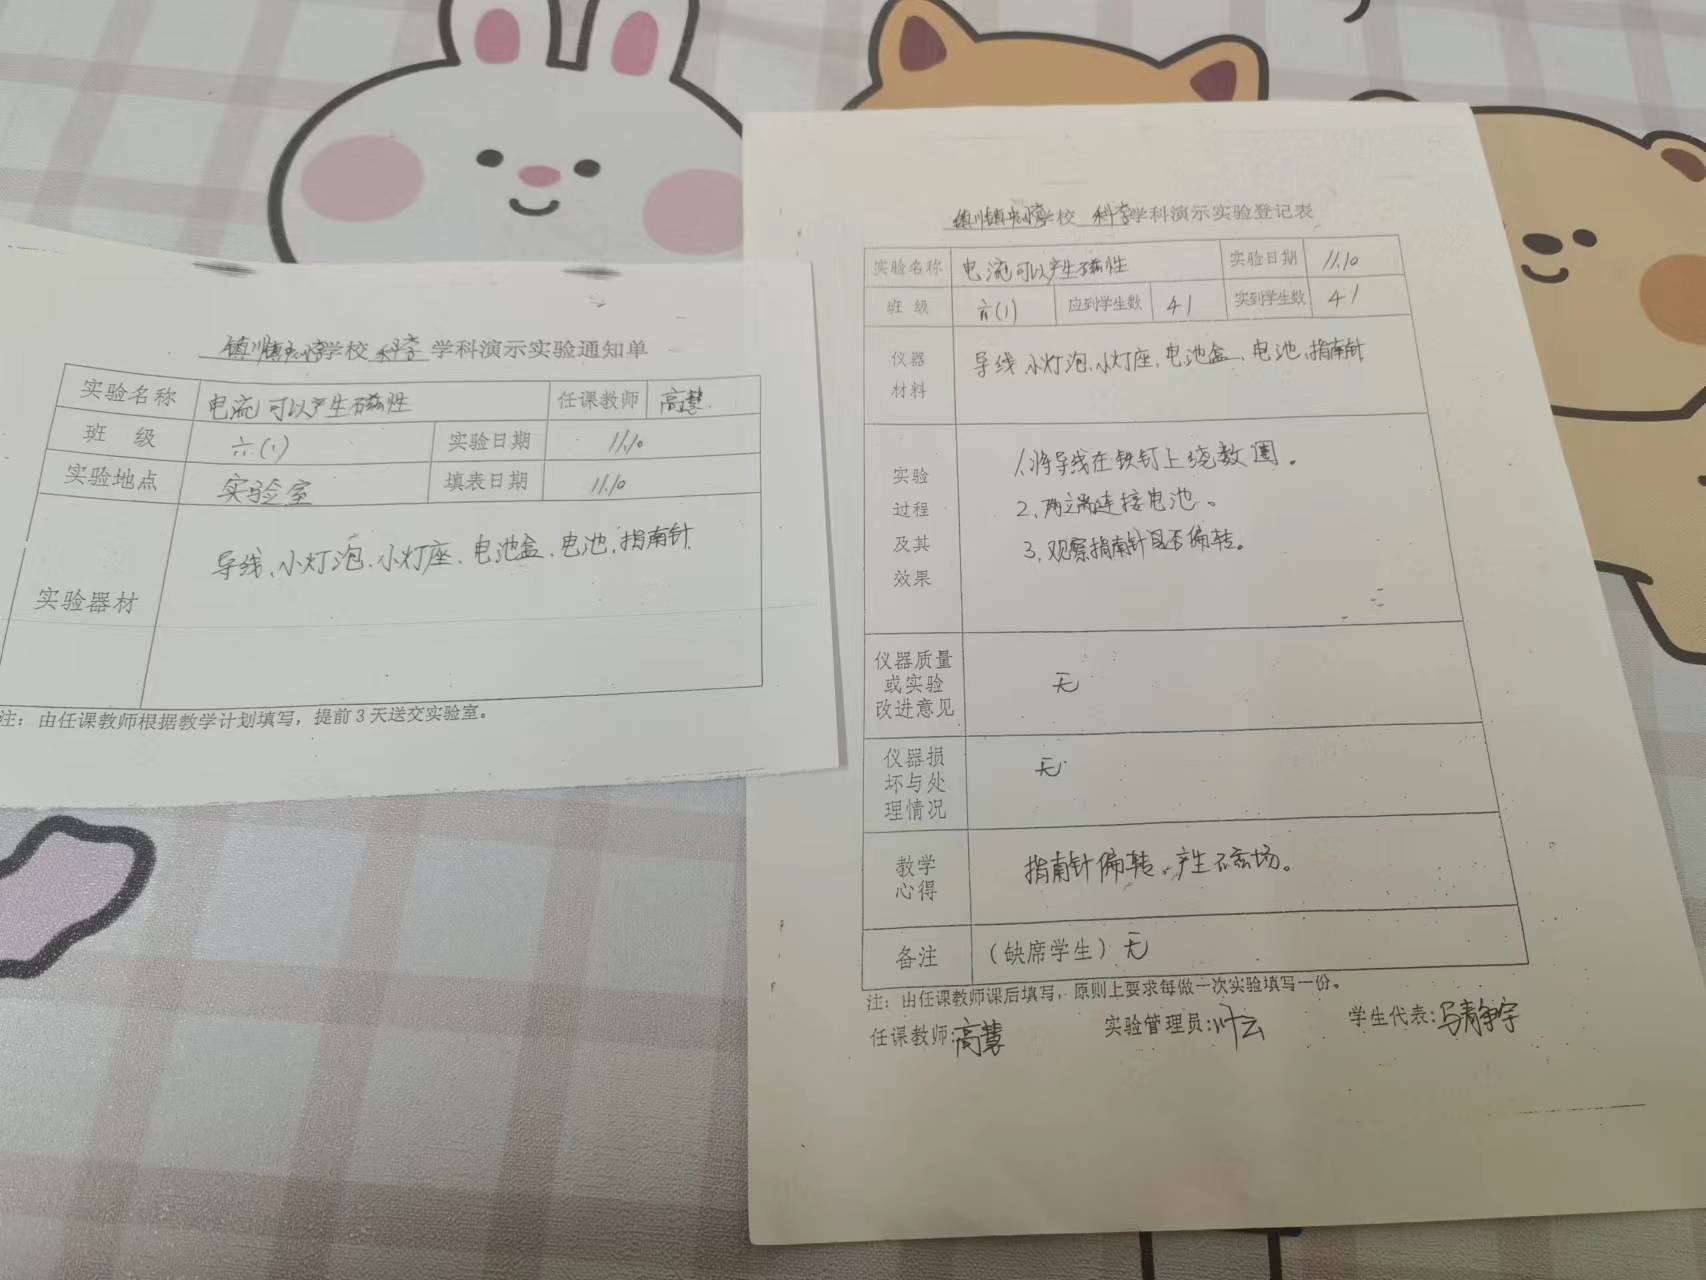 镇川镇中心小学学校 科学 学科演示实验通知单
实验名称 电流可以产生磁性 任课教师 高慧
班 级 六(1) 实验日期 11.10
实验地点 实验室 填表日期 11.10
实验器材 导线、小灯泡、小灯座、电池盒、电池、指南针
注：由任课教师根据教学计划填写，提前3天送交实验室。
学校 科学学科演示实验登记表
实验名称 电流可以产生磁性 实验日期 11.10
班 级 六(1) 应到学生数 41 实到学生数 41
仪器
材料
导线、小灯泡、小灯座、电池盒、电池、指南针
实验
过程
及其
效果
1.将导线在铁钉上绕数圈。
2、两端连接电池。
3、观察指南针是否偏转。
仪器质量
或实验
改进意见
无
仪器损
坏与处
理情况
无
教学
心得
指南针偏转，产生磁场。
备注 (缺席学生) 无
注：由任课教师课后填写，原则上要求每做一次实验填写一份。
任课教师:高慧 实验管理员:叶云 学生代表:马靖宇